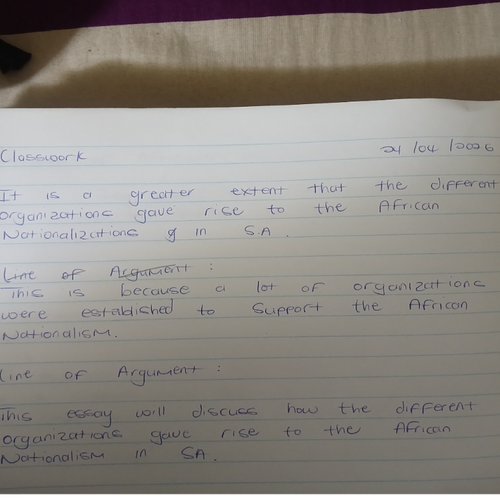 Classwork 21/04/2026
It is a greater extent that the different
organizations gave rise to the African
Nationalizations in S.A.
Line of Argument :
This is because a lot of organizations
were established to support the African
Nationalism.
Line of Argument :
This essay will discuss how the different
organizations gave rise to the African
Nationalism in SA.